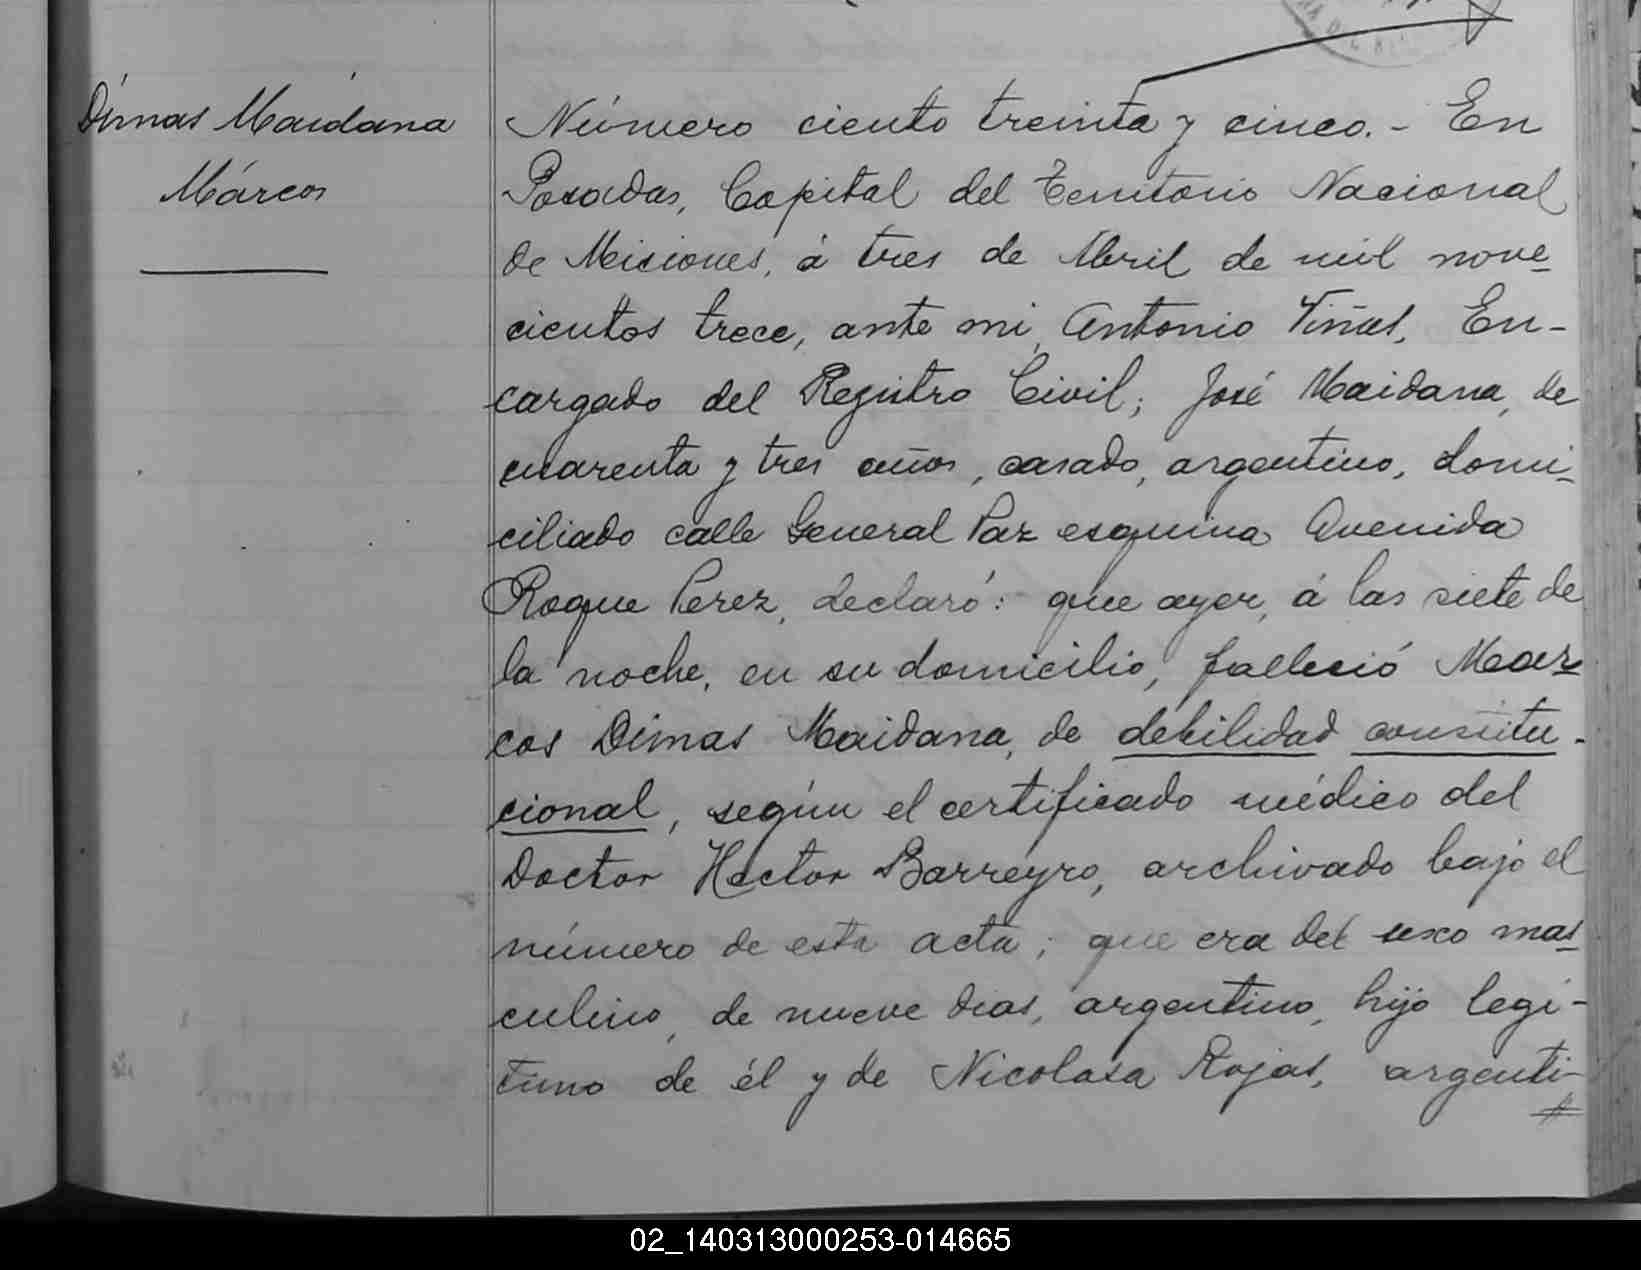 Dimas Maidana
Márcos
Número ciento treinta y cinco. - En
Posadas, Capital del Territorio Nacional
de Misiones, á tres de Abril de mil nove-
cientos trece, ante mi, Antonio Viñas, En-
cargado del Registro Civil; José Maidana, de
cuarenta y tres años, casado, argentino, domi-
ciliado calle General Paz esquina Avenida
Roque Perez, declaró: que ayer, á las siete de
la noche, en su domicilio, falleció Mar-
cos Dimas Maidana, de debilidad constitu-
cional, según el certificado médico del
Doctor Hector Barreyro, archivado bajo el
número de esta acta; que era del sexo mas-
culino, de nueve dias, argentino, hijo legi-
timo de él y de Nicolasa Rojas, argenti-
02_140313000253-014665